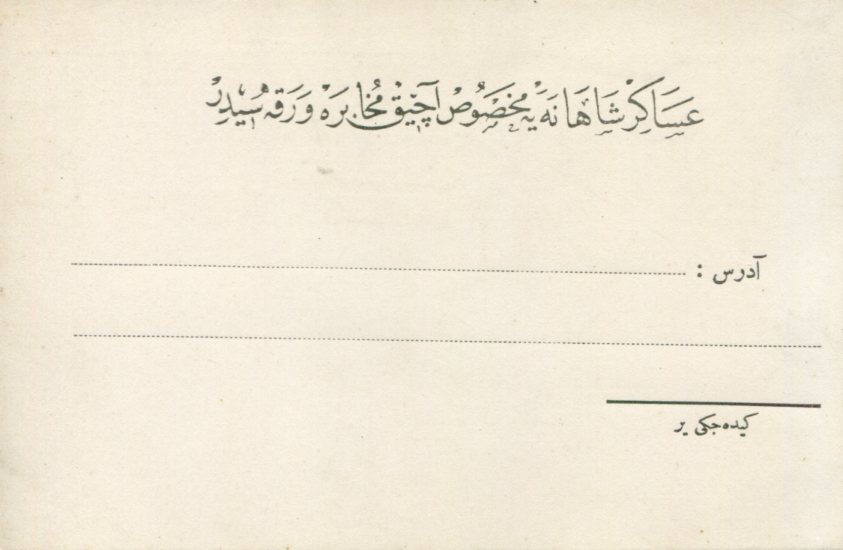 عساكر شاهانه يه مخصوص آچيق مخابره ورقه سيدر
آدرس :
كيده جكى ير